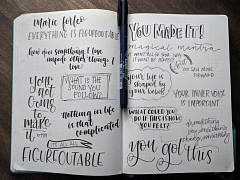 marie forleo
EVERYTHING IS FIGUREOUTABLE
how does something I love
impede other things I
love?
you're
not
going
to
make
it.
WHAT IS THE
SOUND YOU
FOLLOW?
nothing in life
is that
complicated
IT'S ALL ALL
FIGUREOUTABLE
YOU MADE IT!
magical mantra
your life is
shaped by
your belief
YOUR INNER VOICE
IS IMPORTANT
WHAT COULD YOU
DO IF THIS IS HOW
YOU FELT?
you got this